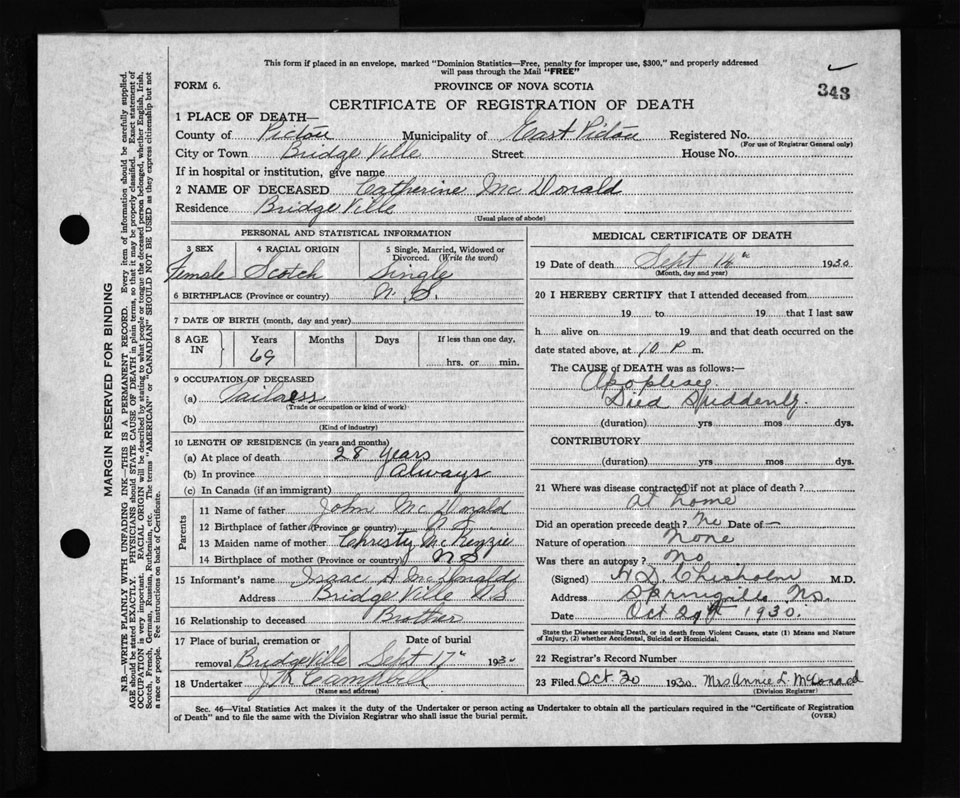 This form if placed in an envelope, marked "Dominion Statistics—Free, penalty for improper use, $300," and properly addressed
will pass through the Mail "FREE"
FORM 6.
PROVINCE OF NOVA SCOTIA
343
CERTIFICATE OF REGISTRATION OF DEATH
1 PLACE OF DEATH—
County of Pictou Municipality of East Pictou Registered No.
(For use of Registrar General only)
City or Town Bridge Ville Street House No.
If in hospital or institution, give name
2 NAME OF DECEASED Catherine McDonald
Residence Bridge Ville
(Usual place of abode)
PERSONAL AND STATISTICAL INFORMATION
3 SEX 4 RACIAL ORIGIN 5 Single, Married, Widowed or
Divorced. (Write the word)
Female Scotch Single
6 BIRTHPLACE (Province or country) N. S.
7 DATE OF BIRTH (month, day and year)
8 AGE IN Years Months Days If less than one day,
69 hrs. or min.
9 OCCUPATION OF DECEASED
(a) Tailoress
(Trade or occupation or kind of work)
(b)
(Kind of industry)
10 LENGTH OF RESIDENCE (in years and months)
(a) At place of death 28 Years
(b) In province Always
(c) In Canada (if an immigrant)
Parents
11 Name of father John McDonald
12 Birthplace of father (Province or country) N.S.
13 Maiden name of mother Christy McKenzie
14 Birthplace of mother (Province or country) N S
15 Informant's name Isaac A. McDonald
Address Bridge Ville NS
16 Relationship to deceased Brother
17 Place of burial, cremation or Date of burial
removal Bridgeville Sept 17th 1930
18 Undertaker Campbell
(Name and address)
MEDICAL CERTIFICATE OF DEATH
19 Date of death Sept 14th 1930
(Month, day and year)
20 I HEREBY CERTIFY that I attended deceased from
19 to 19 that I last saw
h alive on 19 and that death occurred on the
date stated above, at 10 P m.
The CAUSE of DEATH was as follows:—
Apoplexy
Died Suddenly.
(duration) yrs mos dys.
CONTRIBUTORY
(duration) yrs mos dys.
21 Where was disease contracted if not at place of death?
At home
Did an operation precede death? No Date of—
Nature of operation None
Was there an autopsy? No
(Signed) H.D. Chisholm M.D.
Address Springville Ns.
Date Oct 29th 1930.
State the Disease causing Death, or in death from Violent Causes, state (1) Means and Nature
of Injury, (2) whether Accidental, Suicidal or Homicidal.
22 Registrar's Record Number
23 Filed Oct 30 1930 Mrs Annie L. McDonald
(Division Registrar)
Sec. 46—Vital Statistics Act makes it the duty of the Undertaker or person acting as Undertaker to obtain all the particulars required in the "Certificate of Registration
of Death" and to file the same with the Division Registrar who shall issue the burial permit.
(OVER)
MARGIN RESERVED FOR BINDING
N.B.—WRITE PLAINLY WITH UNFADING INK—THIS IS A PERMANENT RECORD. Every item of information should be carefully supplied.
AGE should be stated EXACTLY. PHYSICIANS should STATE CAUSE OF DEATH in plain terms, so that it may be properly classified. Exact statement of
OCCUPATION is very important. RACIAL ORIGIN will be described by stating to what people or tongue the deceased person belonged, whether English, Irish,
Scotch, French, German, Russian, Ruthenian, etc. The terms "AMERICAN" or "CANADIAN" SHOULD NOT BE USED as they express citizenship but not
a race or people. Fee instructions on back of Certificate.